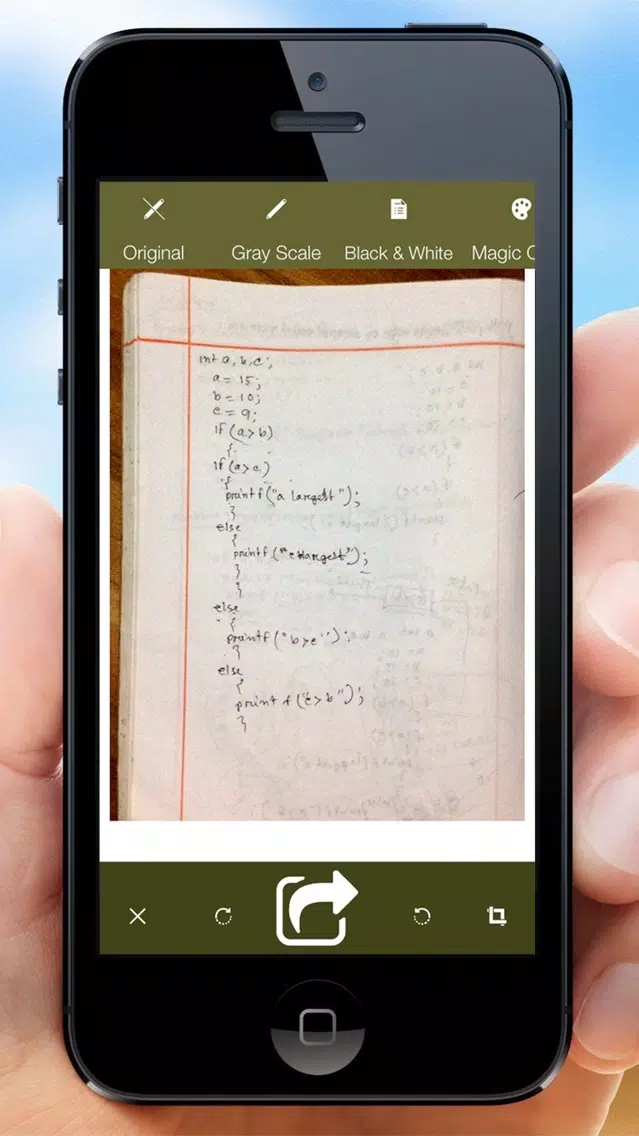 Original Gray Scale Black & White Magic C
int a, b, c;
a = 15;
b = 10;
c = 9;
if (a > b)
{
if (a > c)
{
printf("a largest");
}
else
{
printf("c largest");
}
}
else
{
printf("b>c");
}
else
{
printf("c>b");
}